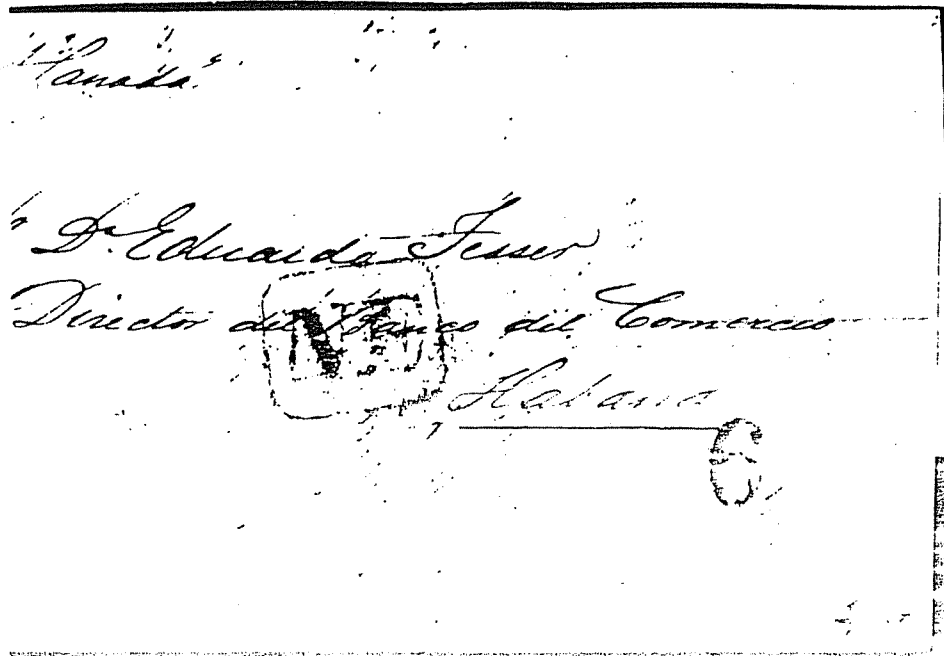 "Canada"
Dn. Eduardo Fesser
Director del Banco del Comercio
Habana
6